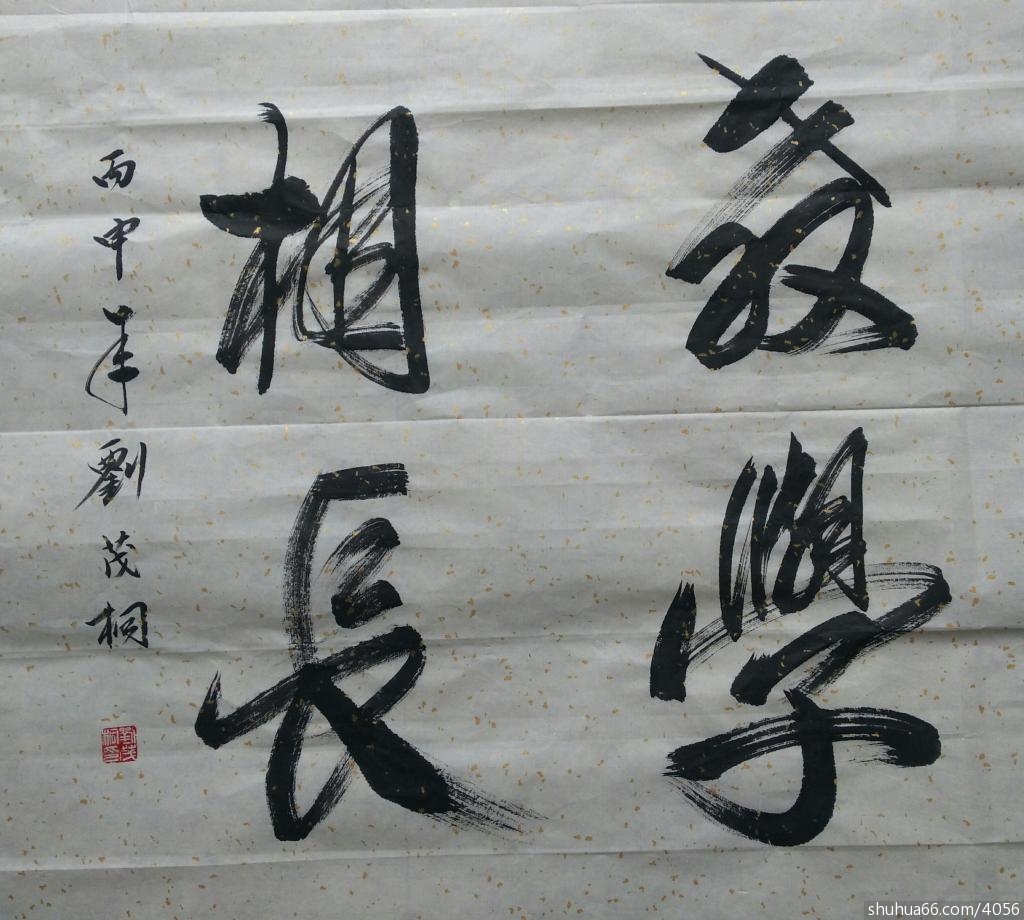 教學
相長
丙申年劉茂桐
劉茂桐印
shuhua66.com/4056